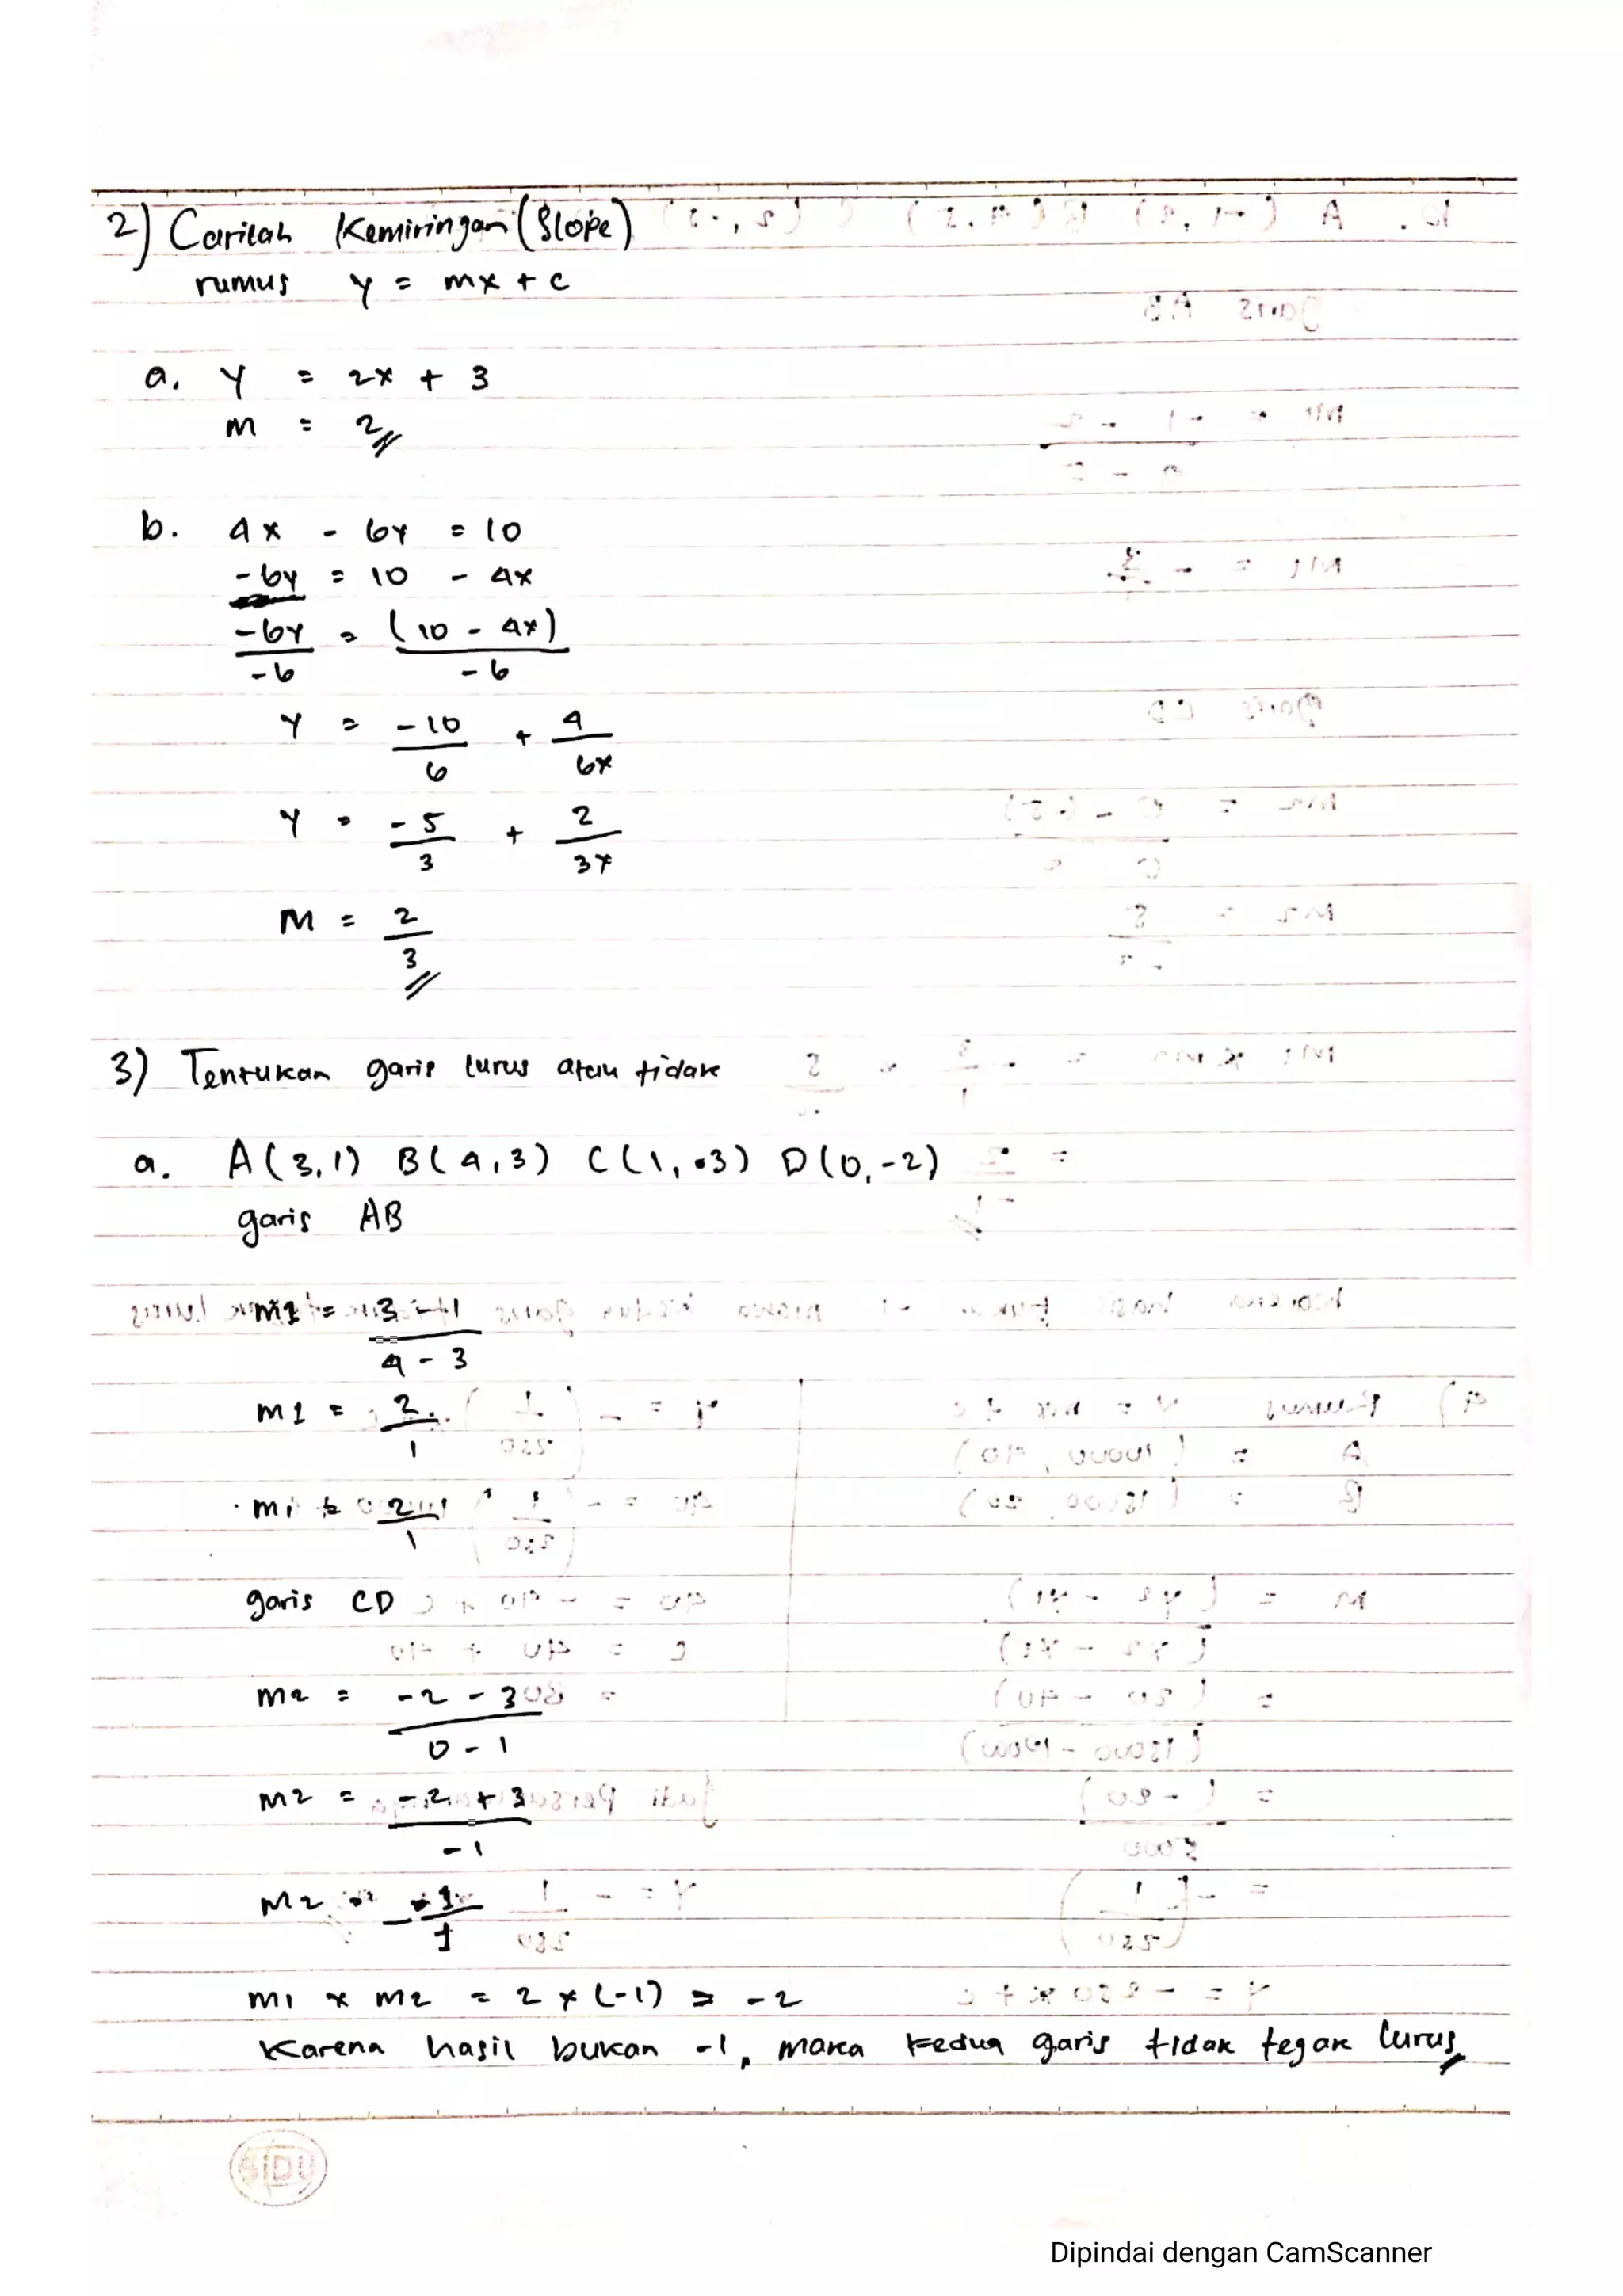 2) Carilah Kemiringan (Slope)
rumus y = mx + c
a. y = 2x + 3
m = 2
b. 4x - 6y = 10
-6y = 10 - 4x
-6y = (10 - 4x)
-6 -6
y = -10 + 4
6 6x
y = -5 + 2
3 3x
M = 2
3
3) Tentukan garis lurus atau tidak
a. A(3,1) B(4,3) C(1,-3) D(0,-2)
garis AB
m1 = 3 - 1
4 - 3
m1 = 2
1
m1 = 2
1
garis CD
m2 = -2 - 3
0 - 1
m2 = -2 + 3
-1
m2 = -1
1
m1 x m2 = 2 x (-1) = -2
Karena hasil bukan -1, maka kedua garis tidak tegak lurus
SIDU
Dipindai dengan CamScanner